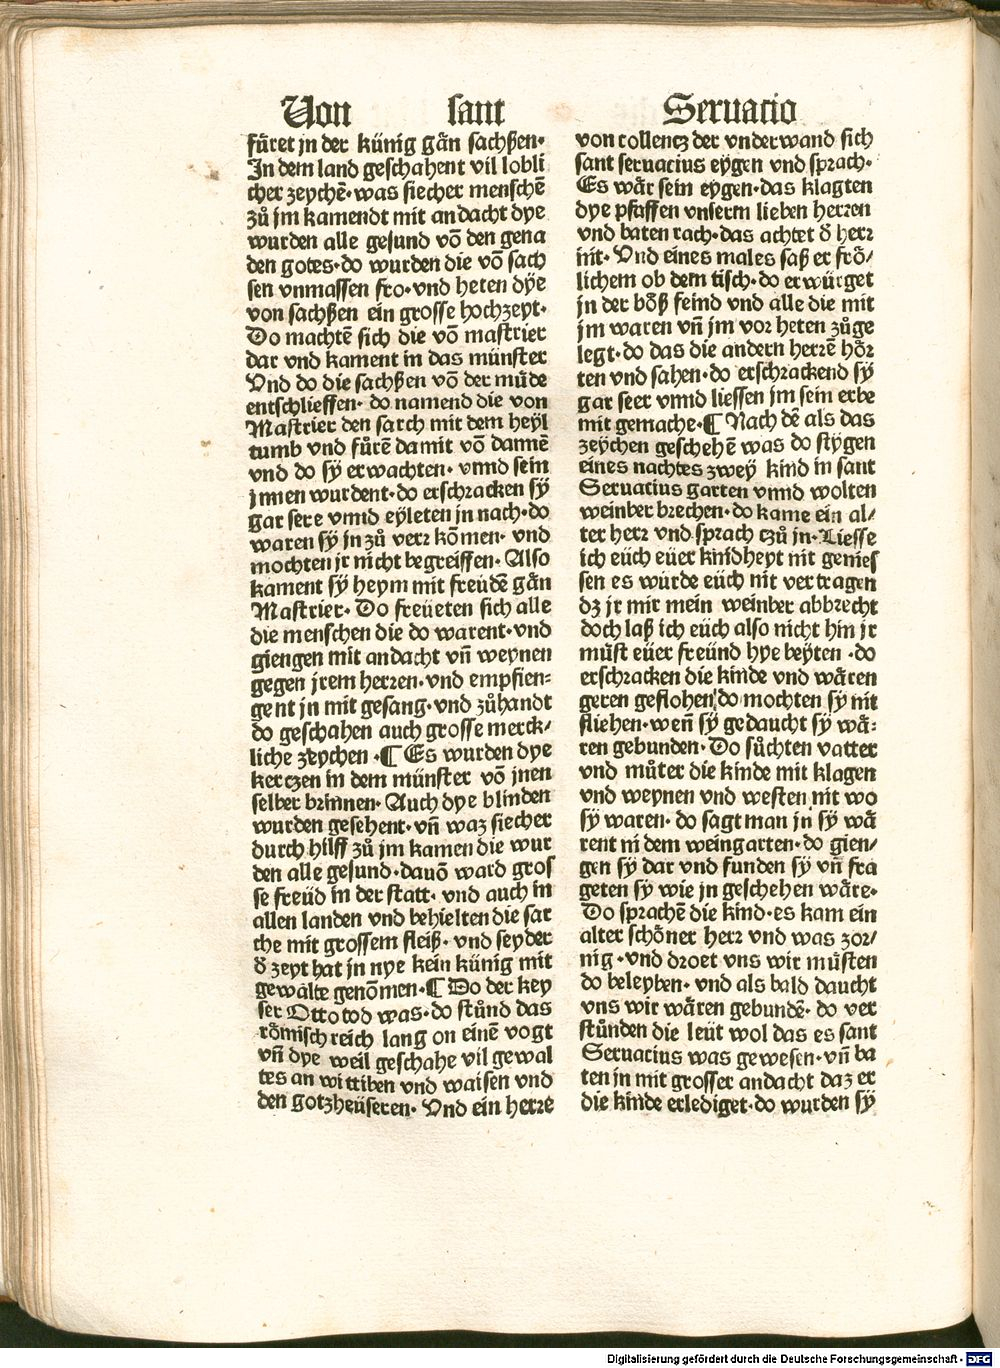 Von sant Seruacio
fuͤret in der künig gân sachßen·
In dem land geschahent vil lobli
cher zeychē· was siecher menschē
zů jm kamendt mit andacht dye
wurden alle gesund vō den gena
den gotes· do wurden die vō sach
sen vnmassen fro· vnd heten dÿe
von sachßen ein grosse hochzeyt·
Do machtē sich die vō mastrier
dar vnd kament in das münster
Vnd do die sachßen vō der muͤde
entschlieffen· do namend die von
Mastrier den sarch mit dem heyl
tumb vnd fuͤrē damit vō dannē
vnd do sÿ erwachten· vnnd sein
jnnen wurdent· do erschracken sÿ
gar sere vnnd eyleten jn nach· do
waren sÿ jn zů verr kōmen· vnd
mochten jr nicht begreiffen· Also
kament sÿ heym mit freüdē gân
Mastrier· Do freüeten sich alle
die menschen die do warent· vnd
giengen mit andacht vn̄ weynen
gegen jrem herren· vnd empfien⸗
gent jn mit gesang· vnd zůhandt
do geschahen auch grosse merck/
liche zeychen ·¶ Es wurden dye
kerczen in dem münster vō jnen
selber brinnen· Auch dye blinden
wurden gesehent· vn̄ waz siecher
durch hilff zů jm kamen die wur
den alle gesund· dauō ward gros
se freüd in der statt· vnd auch in
allen landen vnd behielten die sar
che mit grossem fleiß· vnd seyder
d̄ zeyt hat jn nye kein künig mit
gewalte genōmen·¶ Do der key
ser Otto tod was· do stůnd das
roͤmisch reich lang on einē vogt
vn̄ dye weil geschahe vil gewal
tes an wittiben vnd waisen vnd
den gotzheüseren· Vnd ein herre
von collencz der vnderwand sich
sant seruacius eygen vnd sprach·
Es waͤr sein eygen· das klagten
dye pfaffen vnserm lieben herren
vnd baten rach· das achtet d̄ herr
nit· Vnd eines males saß er froͤ/
lichem ob dem tisch· do erwürget
jn der boͤß feind vnd alle die mit
jm waren vn̄ jm vor heten zůge
legt· do das die andern herrē hoͤr
ten vnd sahen· do erschrackend sÿ
gar seer vnnd liessen jm sein erbe
mit gemache·¶ Nach dē als das
zeychen geschehē was do stygen
eines nachtes zwey kind in sant
Seruacius garten vnnd wolten
weinber brechen· do kame ein al/
ter herr vnd sprach czů jn· Liesse
ich eüch eüer kindheyt nit genies
sen es wurde eüch nit vertragen
dz jr mir mein weinber abbrecht
doch laß ich eüch also nicht hin jr
muͤst eüer freünd hye beyten ·do
erschracken die kinde vnd waͤren
geren geflohen· do mochten sÿ nit
fliehen· wen̄ sÿ gedaucht sÿ waͤ⸗
ren gebunden· Do sůchten vatter
vnd můter die kinde mit klagen
vnd weynen vnd westen nit wo
sÿ waren· do sagt man jn sÿ waͤ
rent in dem weingarten· do gien/
gen sÿ dar vnd funden sÿ vn̄ fra
geten sÿ wie jn geschehen waͤre·
Do sprachē die kind· es kam ein
alter schoͤner herr vnd was zor/
nig · vnd droet vns wir muͤsten
do beleyben· vnd als bald daucht
vns wir waͤren gebundē· do ver
stůnden die leüt wol das es sant
Seruacius was gewesen· vn̄ ba
ten jn mit grosser andacht daz er
die kinde erlediget· do wurden sÿ
Digitalisierung gefördert durch die Deutsche Forschungsgemeinschaft - DFG